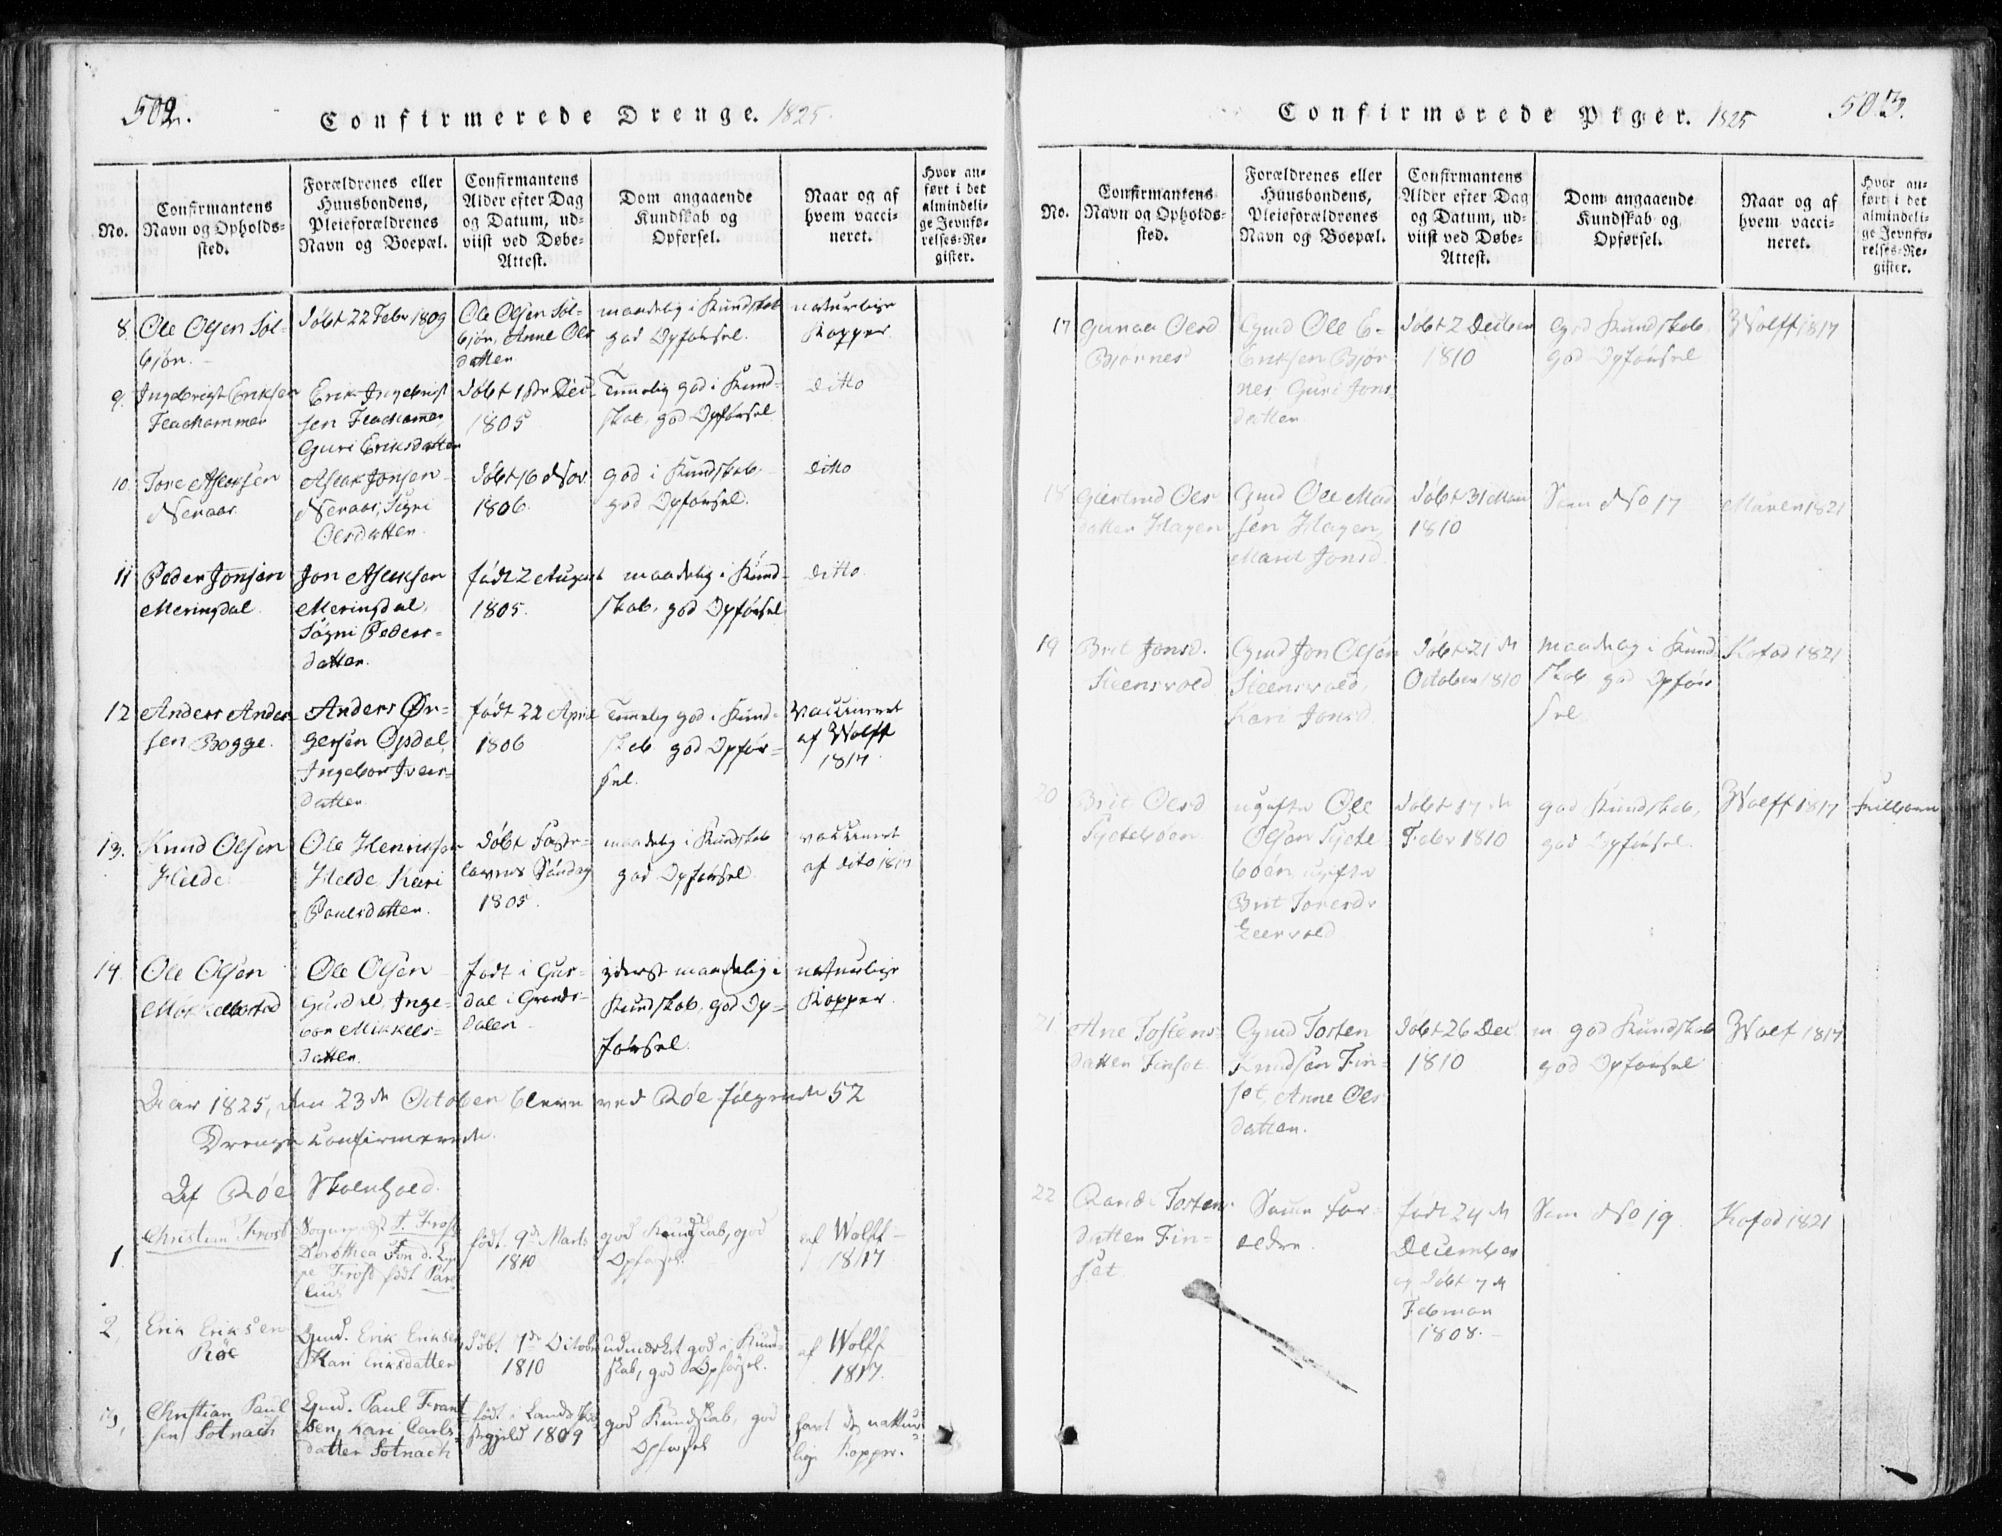 502.
Confirmerede Drenge. 1825.
No.
Confirmantens
Navn og Opholds-
sted.
Forældrenes eller
Huusbondens,
Pleieforældrenes
Navn og Boepæl.
Confirmantens
Alder efter Dag
og Datum, ud-
viist ved Døbe-
Attest.
Dom angaaende
Kundskab og
Opførsel.
Naar og af
hvem vacci-
neret.
Hvor an-
ført i det
almindeli-
ge Jevnfø-
relses-Re-
gister.
8.
Ole Olsen Søl-
bjør.
døbt 22 Febr 1809
Ole Olsen Søl-
bjør, Anne Ols
datter
maadelig i Kundskab
god Opførsel.
naturlige
Kopper.
9.
Ingebrigt Eriksen
Erik Ingebrigt
sen
Guri Eriksdatter
døbt 18de Dec.
1805
Temmelig god i Kund-
skab, god Opførsel
ditto
10.
Tore Aslaksen
Neraas.
Aslak Jonsen
Neraas, Sigri
Olsdatter
døbt 16 Nov.
1806.
god i Kundskab,
god Opførsel.
ditto
11
Peder Jonsen
Meringdal.
Jon Aslaksen
Meringdal,
Sigri Peders-
datter.
født 2 August
1805.
maadelig i Kund-
skab, god Opførsel
ditto.
12
Anders Ander-
sen Bogge.
Anders Ør-
gersen Opdal,
Ingebor Iver-
datter
født 22 April
1806
Temmelig god i Kund-
skab god Opfør-
sel.
vaccineret
af Wolff
1817.
13.
Knud Olsen
Helde
Ole Henriksen
Helde Kari
Paulsdatter.
Døbt Faste-
lavns Søndag
1805.
maadelig i Kundskab
god Opførsel.
vaccineret
af dito 1817
14.
Ole Olsen
Ole Olsen
Gusdal, Inge-
bor Mikkels-
datter.
født i Gus-
dal i Grønds-
dalen
yderst maadelig i
Kundskab, god Op-
førsel.
naturlige
Kopper.
Aar 1825, den 23de October bleve ved Røe følgende 52
Drenge confirmerede.
Af Røe Skolehold.
1.
Christian Frost
Sognepræst F. Frost
Dorothea
Frost født
født 9de Marts
1810
god Kundskab, god
Opførsel.
af Wolff
1817
2,
Erik Eriksen
Røe
Gmd. Erik Eriksen
Kari Eriksdatter
døbt 7de Octobr
1810
udmærket god i Kund-
skab, god Opførsel.
af Wolff
1817.
3,
Christian Paul
sen Solnach
Gmd. Paul Frant
sen, Kari Carls-
datter Solnach
født i Lands
1809
god Kundskab, god
Opførsel
havt de nattur
lige Kopper.
Confirmerede Piger. 1825
503.
No.
Confirmantens
Navn og Opholds-
sted.
Forældrenes eller
Huusbondens,
Pleieforældrenes
Navn og Boepæl.
Confirmantens
Alder efter Dag
og Datum, ud-
viist ved Døbe-
Attest.
Dom angaaende
Kundskab og
Opførsel.
Naar og af
hvem vacci-
neret.
Hvor an-
ført i det
almindeli-
ge Jevnfø-
relses-Re-
gister.
17
Olsd
Bjørnes
Gmd Ole E-
Eriksen Bjør
nes Guri Jons
datter
døbt 2 Decber
1810
God Kundskab
God Opførsel
Wolff 1817
18
Giertrud Ols
datter Hagen
Gmd Ole Mad
sen Hagen,
Marit Jonsd
døbt 31 Mai
1810
Som No 17
1821
19
Brit Jonsd.
Steensvold
Gmd Jon Olsen
Steensvold,
Kari Jonsd
døbt 21 de
October 1810
Maadelig i Kund
skab god Opfør
sel
Kofod 1821
20
Brit Olsd
ugifte Ole
Olsen
ugifte
Brit
døbt 17 de
Febr 1810
god Kundskab,
god Opførsel.
Wolff 1817
21
Ane Tostens
datter Finset
Gmd Tosten
Knudsen Fin-
set, Anne Ols
datter.
døbt 26 Dec
1810
m god Kundskab
god Opførsel
Wolf 1817
22
Rande Tostens
datter Fin-
set.
Samme For-
ældre.
født 24 de
December
og døbt 7 de
Februar
1808.
Som No 19
Kofod 1821